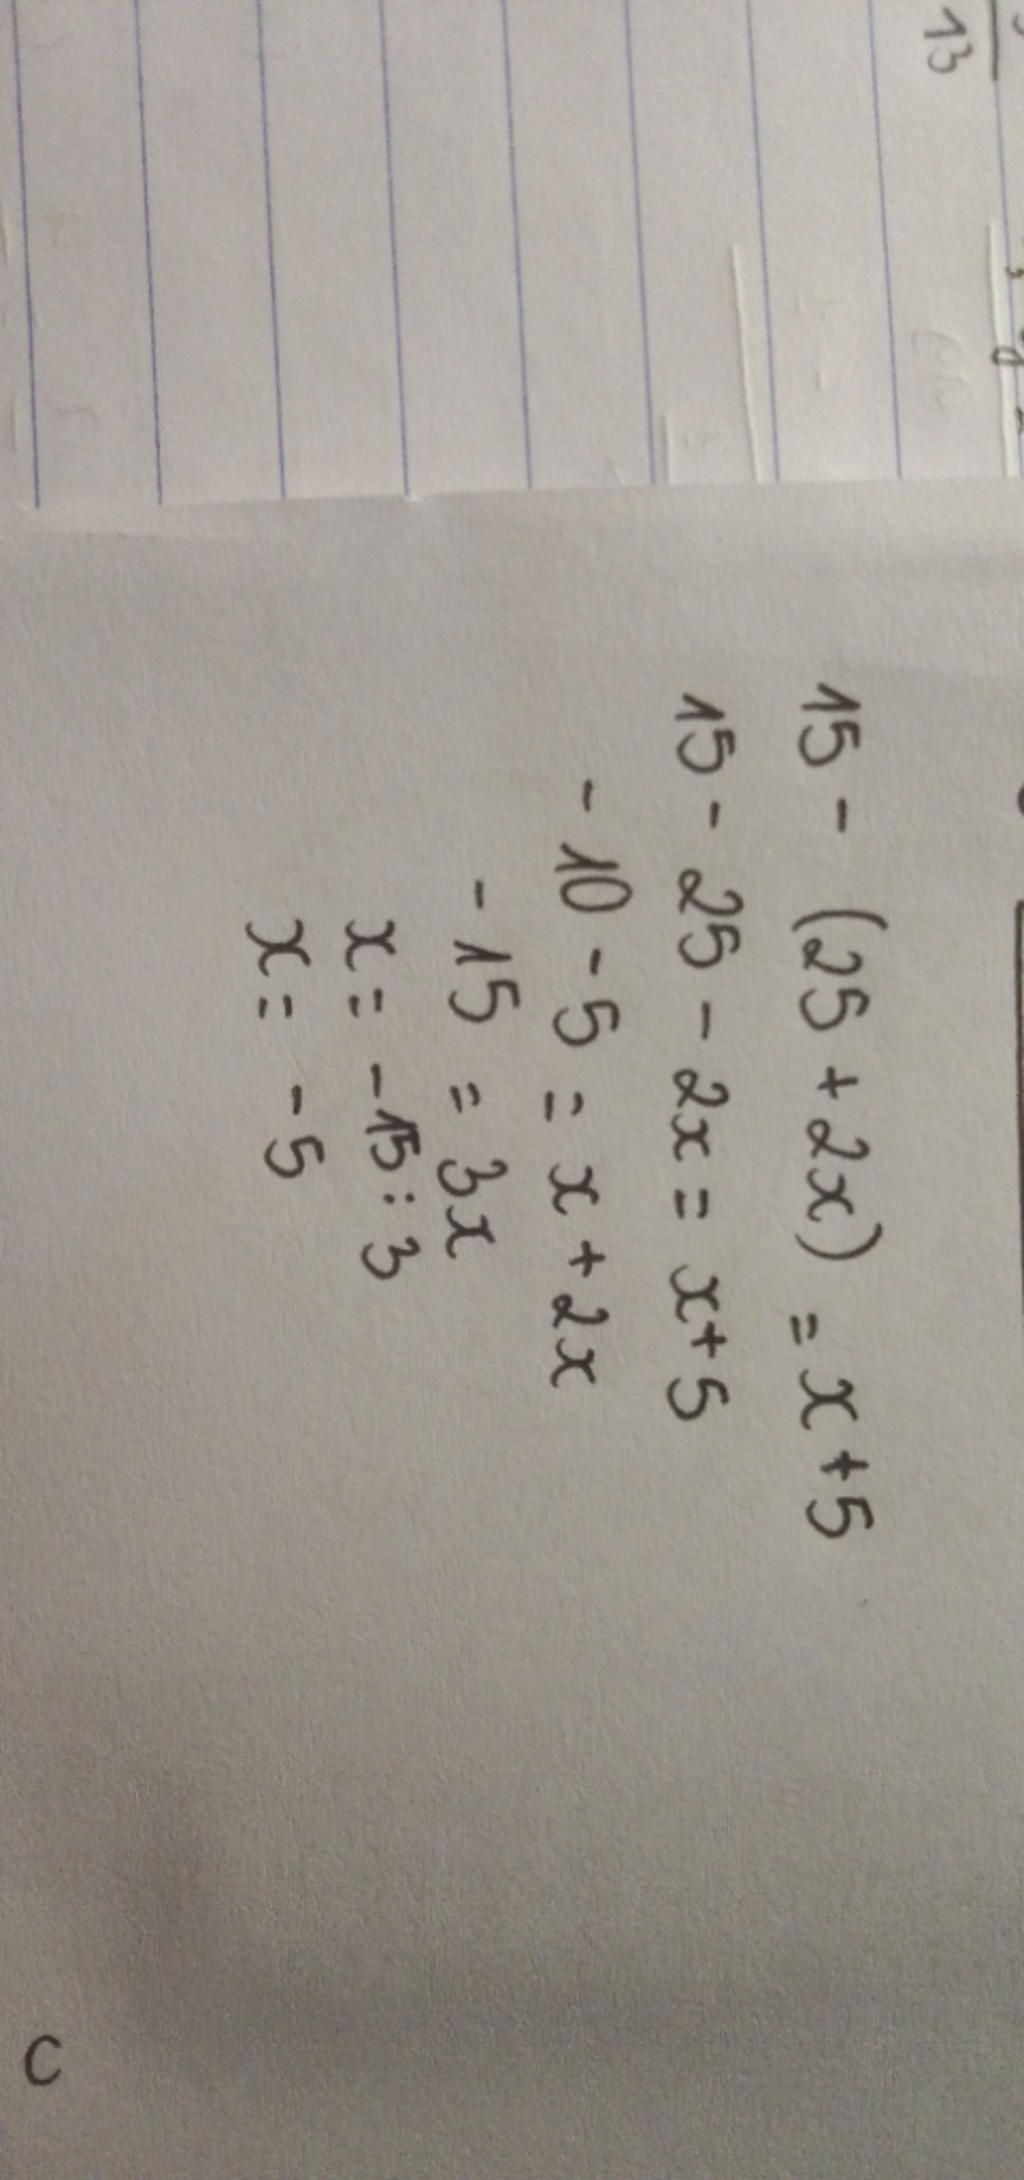 13
15 - (25 + 2x) = x + 5
15 - 25 - 2x = x + 5
- 10 - 5 = x + 2x
- 15 = 3x
x = - 15 : 3
x = - 5
C